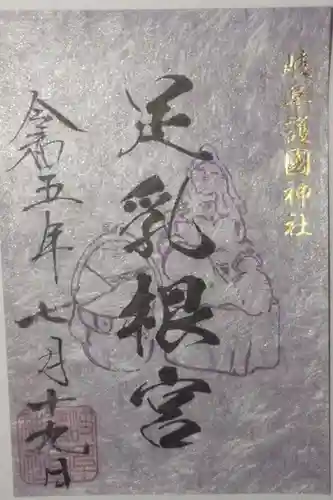 岐阜護國神社
足乳根宮
令和五年七月十九日